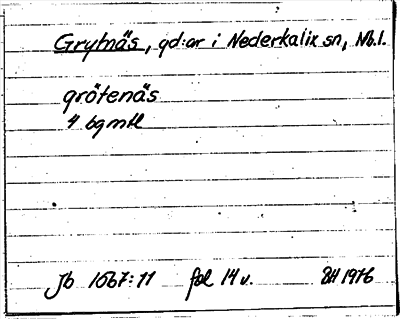 Grytnäs, gd:ar i Nederkalix sn, Nb.l.
grötenäs
4 bgmtl
Jb 1667:11 fol 14 v. BH 1976